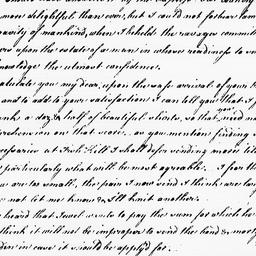 more delightful than ever, but I could not forbear lam
pravity of mankind, when I beheld the ravages committ
ers upon the estate of a man in whose readiness to
knowledge the utmost confidence.
ratulate you my dear, upon the safe arrival of your
and to add to your satisfaction I can tell you that I
nk a doz. & half of beautiful shirts, so that need no
prehension on that score. as you mention finding
ressaries at Fish Kill I shall defer sending more till
particularly what will be most agreeable. I fear the
ou are too small, the pair I now send I think are lar
e not let me know & I'll knit another.
heard that Jewel wants to pay the sum for which he
think it will not be improper to send the bond & mortg
den in case it should be apply'd for.